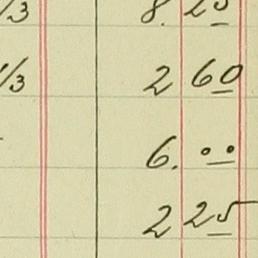 /3 8. 25
1/3 2 60
6. 00
2 25